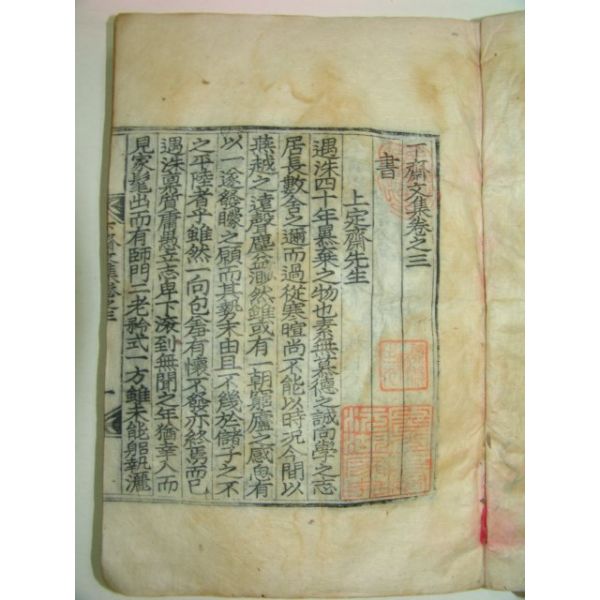 下齋文集卷之三
書
上定齋先生
遇洙四十年暴棄之物也素無慕德之誠向學之志
居長數舍之邇而過從寒暄尚不能以時況今間以
燕越之遠聲塵益漠然雖或有一朝窮廬之感思有
以一遂發矇之願而其勢末由且不幾於儲子之不
之平陸者乎雖然一向包羞有懷不發亦終焉而已
遇洙稟質庸愚立志卑下滾到無聞之年猶幸入而
見家髦出而有師門二老矜式一方雖未能躬執灑
齋文集卷之三
一